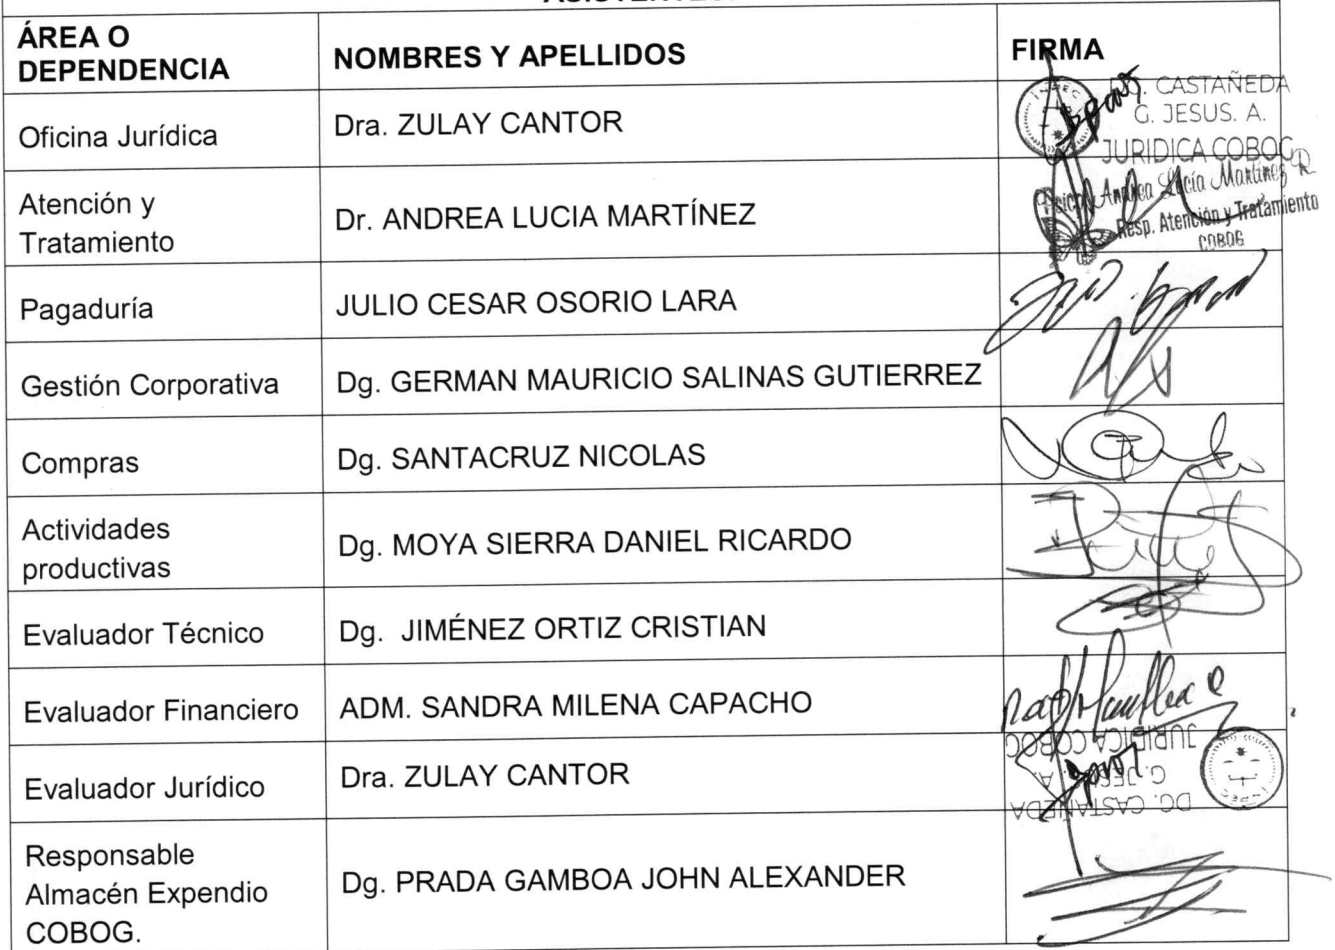 ÁREA O
DEPENDENCIA
NOMBRES Y APELLIDOS
FIRMA
Oficina Jurídica
Dra. ZULAY CANTOR
CASTAÑEDA
G. JESUS. A.
JURIDICA COBOG
Atención y
Tratamiento
Dr. ANDREA LUCIA MARTÍNEZ
Andrea Lucía Martínez R.
Resp. Atención y Tratamiento
COBOG
Pagaduría
JULIO CESAR OSORIO LARA
Gestión Corporativa
Dg. GERMAN MAURICIO SALINAS GUTIERREZ
Compras
Dg. SANTACRUZ NICOLAS
Actividades
productivas
Dg. MOYA SIERRA DANIEL RICARDO
Evaluador Técnico
Dg. JIMÉNEZ ORTIZ CRISTIAN
Evaluador Financiero
ADM. SANDRA MILENA CAPACHO
Evaluador Jurídico
Dra. ZULAY CANTOR
DG. CASTAÑEDA
JURIDICA COBOG
Responsable
Almacén Expendio
COBOG.
Dg. PRADA GAMBOA JOHN ALEXANDER